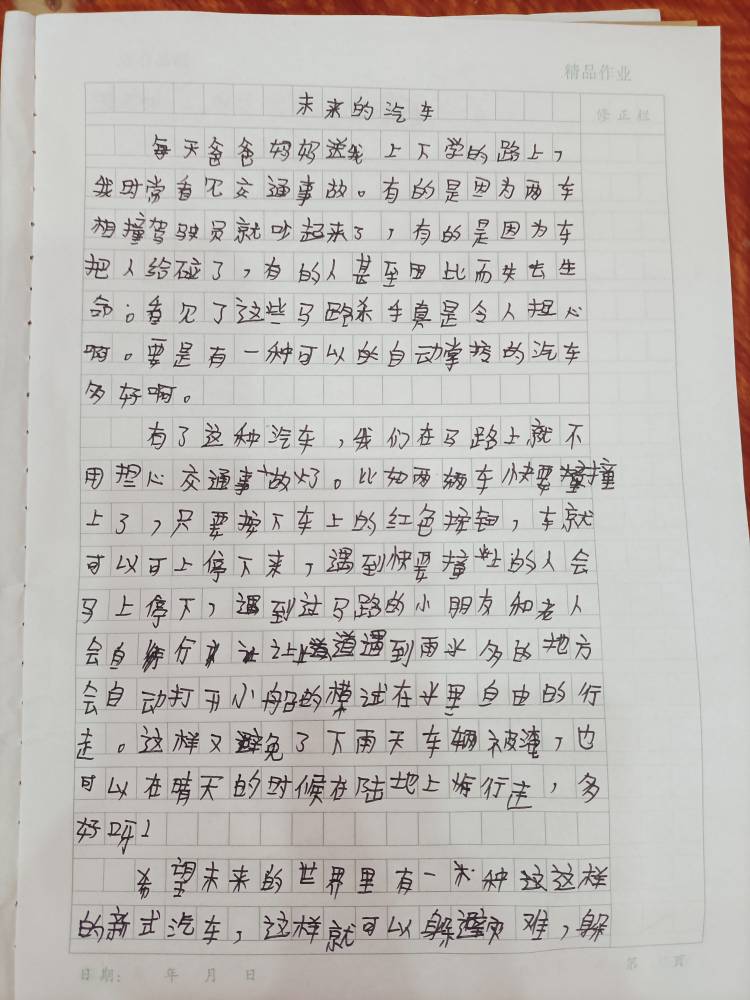 精品作业
修正栏
未来的汽车
每天爸爸妈妈送我上下学的路上，
我时常看见交通事故。有的是因为两车
相撞驾驶员就吵起来了，有的是因为车
把人给碰了，有的人甚至因此而失去生
命。看见了这些马路杀手真是令人担心
啊。要是有一种可以的自动掌控的汽车
多好啊。
有了这种汽车，我们在马路上就不
用担心交通事故了。比如两辆车快要撞
上了，只要按下车上的红色按钮，车就
可以可上停下来，遇到快要撞上的人会
马上停下，遇到过马路的小朋友和老人
会自行让道遇到雨水多的地方
会自动打开小船的模试在水里自由的行
走。这样又避免了下雨天车辆被淹，也
可以在晴天的时候在陆地上行走，多
好呀！
希望未来的世界里有一种这这样
的新式汽车，这样就可以躲避灾难，躲
日期： 年 月 日 第 页